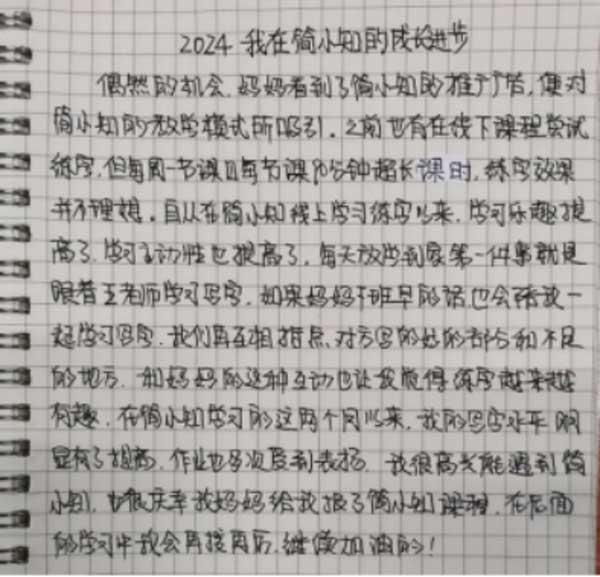 2024 我在简小知的成长进步
偶然的机会,妈妈看到了简小知的推广后,便对
简小知的教学模式所吸引。之前也有在线下课程尝试
练字,但每周一节课且每节课90分钟超长课时,练字效果
并不理想。自从在简小知线上学习练字以来,学习乐趣提
高了,学习主动性也提高了,每天放学到家第一件事就是
跟着王老师学习写字,如果妈妈下班早的话也会陪我一
起学习写字,我们再互相指点对方写的好的部分和不足
的地方,和妈妈的这种互动也让我觉得练字越来越
有趣,在简小知学习的这两个月以来,我的写字水平明
显有了提高,作业也多次受到表扬,我很高兴能遇到简
小知,也很庆幸我妈妈给我报了简小知课程,在后面
的学习中我会再接再厉,继续加油的!